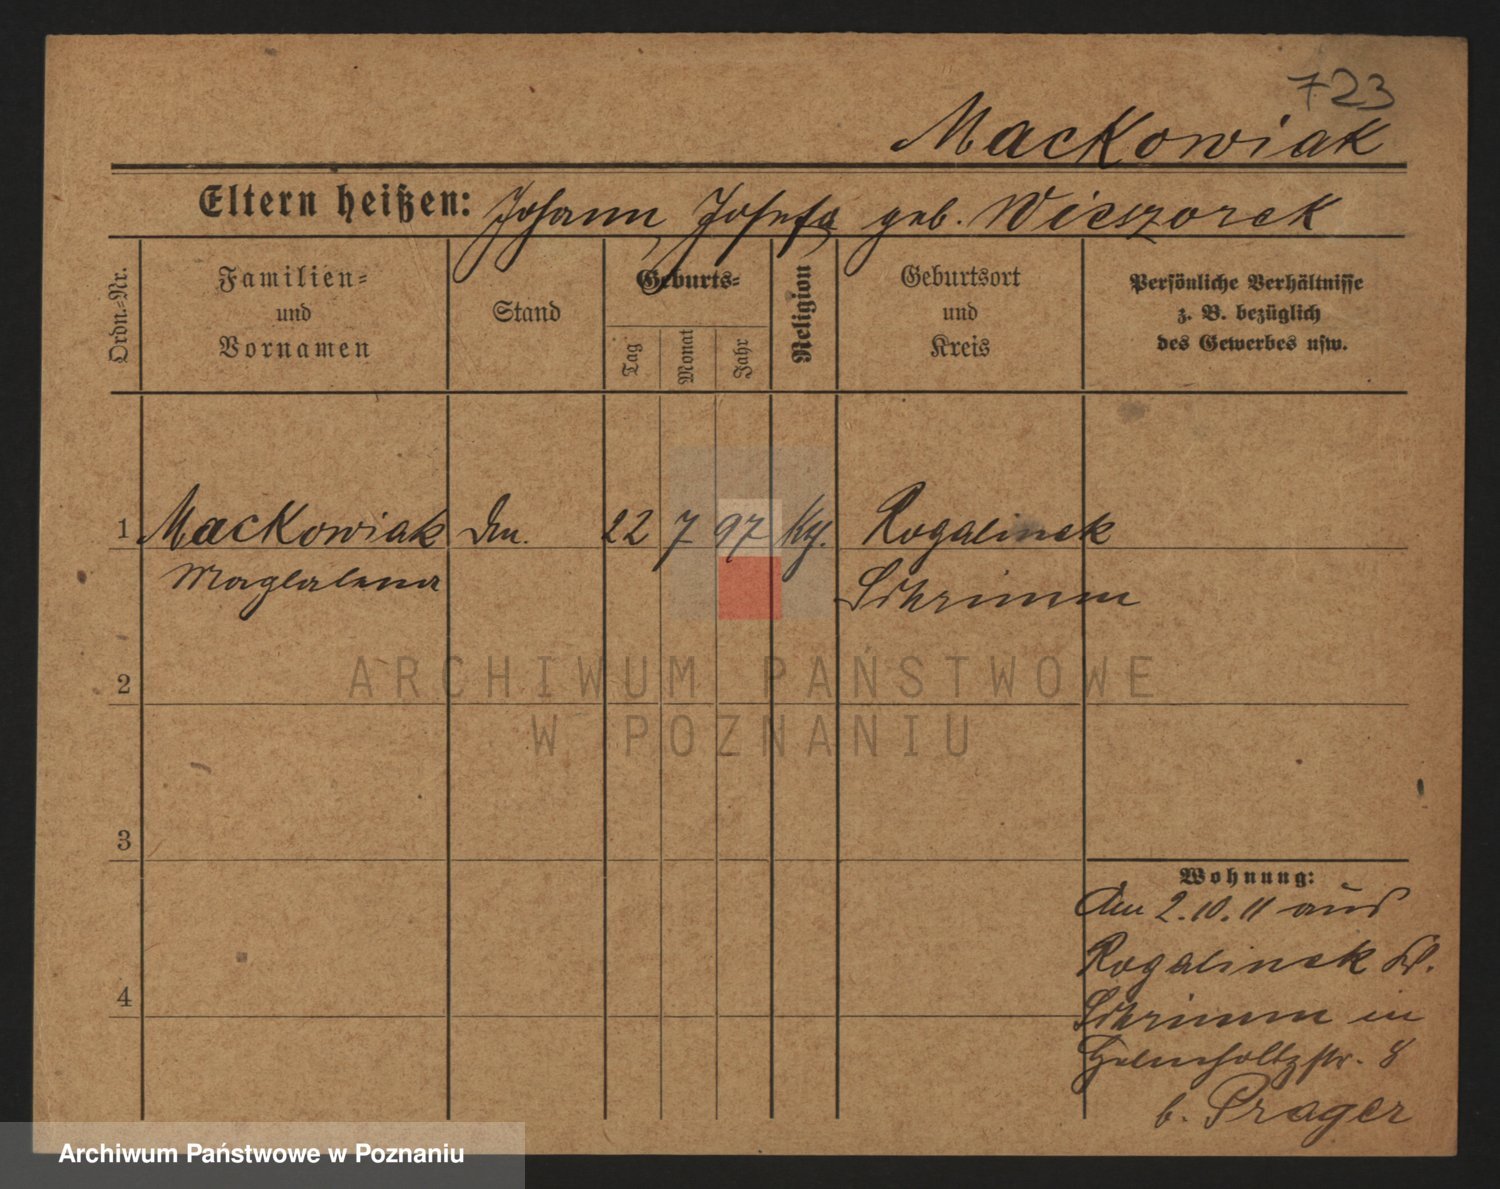 723
Mackowiak
Eltern heißen: Johann, Josefa geb. Wieszorek
Ordn.-Nr.
Familien-
und
Vornamen
Stand
Geburts-
Tag
Monat
Jahr
Religion
Geburtsort
und
Kreis
Persönliche Verhältnisse
z. B. bezüglich
des Gewerbes usw.
1 Mackowiak 22 7 97 Rogalinek
Magdalena Schrimm
2
ARCHIWUM PAŃSTWOWE
W POZNANIU
3
Wohnung:
Am 2.10.11 aus
Rogalinek
4
Schrimm in
Helmholtzstr. 8
b. Prager
Archiwum Państwowe w Poznaniu